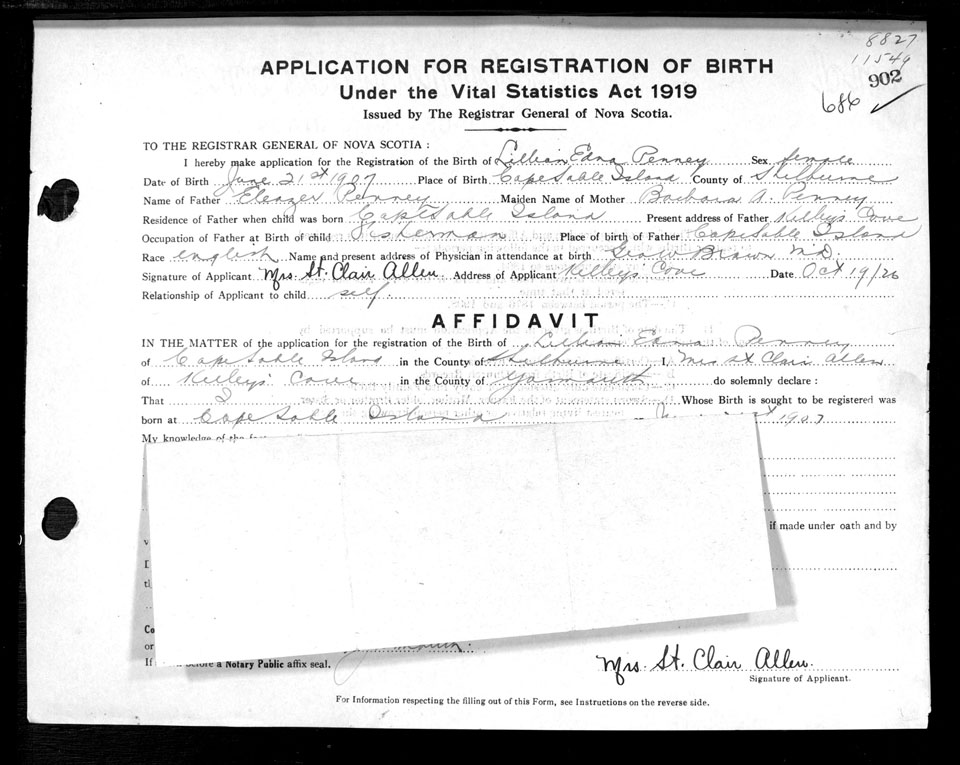 8827
11549
902
686 ✓
APPLICATION FOR REGISTRATION OF BIRTH
Under the Vital Statistics Act 1919
Issued by The Registrar General of Nova Scotia.
TO THE REGISTRAR GENERAL OF NOVA SCOTIA :
I hereby make application for the Registration of the Birth of Lillian Edna Penney Sex female
Date of Birth June 21st 1907 Place of Birth Cape Sable Island County of Shelburne
Name of Father Eleazer Penney Maiden Name of Mother Barbara A. Penney
Residence of Father when child was born Cape Sable Island Present address of Father Kelley's Cove
Occupation of Father at Birth of child Fisherman Place of birth of Father Cape Sable Island
Race english Name and present address of Physician in attendance at birth Geo W Brown M.D.
Signature of Applicant Mrs. St. Clair Allen Address of Applicant Kelley's Cove Date Oct 19/26
Relationship of Applicant to child self
AFFIDAVIT
IN THE MATTER of the application for the registration of the Birth of Lillian Edna Penney
of Cape Sable Island in the County of Shelburne I, Mrs St Clair Allen
of Kelley's Cove in the County of Yarmouth do solemnly declare :
That I Whose Birth is sought to be registered was
born at Cape Sable Island 1907
My knowledge of the
if made under oath and by
Co
or
If before a Notary Public affix seal.
Mrs. St. Clair Allen.
Signature of Applicant.
For Information respecting the filling out of this Form, see Instructions on the reverse side.